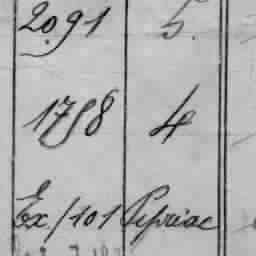 2091 5.
1758 4
Ex./101 Pipriac